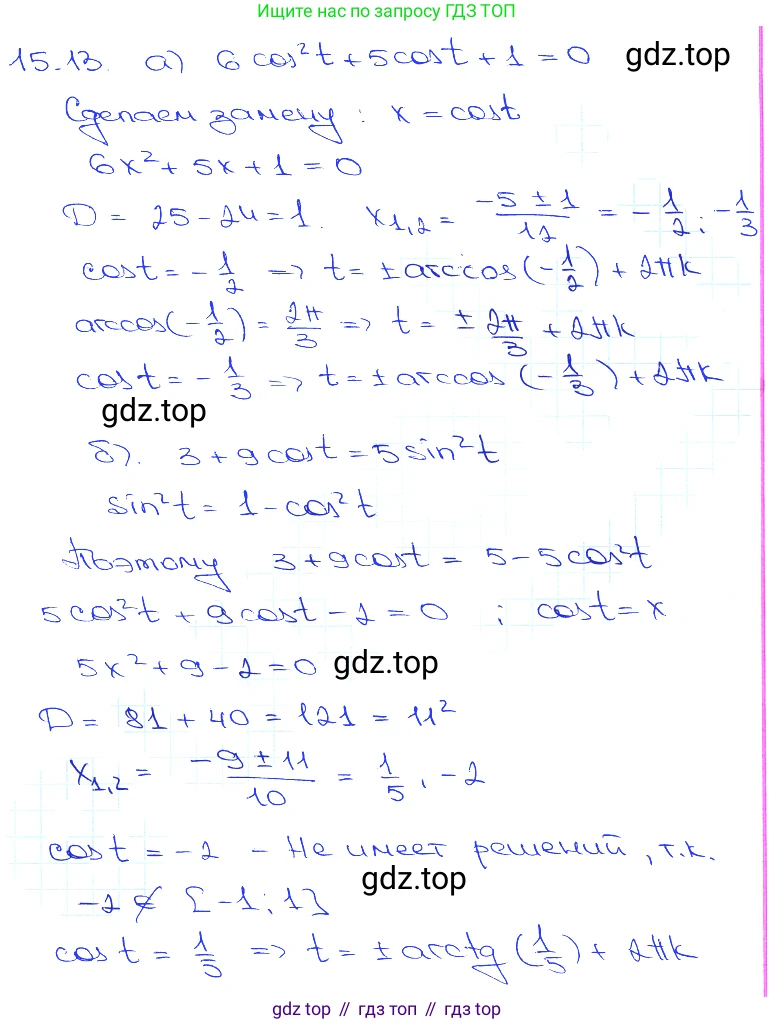 Ищите нас по запросу ГДЗ ТОП
15.13. а) 6 cos²t + 5cost + 1 = 0 gdz.top
Сделаем замену : x = cost
6x² + 5x + 1 = 0
D = 25 - 24 = 1. x₁,₂ = (-5 ± 1)/12 = -1/2 ; -1/3
cost = -1/2 => t = ± arccos(-1/2) + 2πk
arccos(-1/2) = 2π/3 => t = ± 2π/3 + 2πk
cost = -1/3 => t = ± arccos(-1/3) + 2πk
gdz.top
б). 3 + 9cost = 5sin²t
sin²t = 1 - cos²t
Поэтому 3 + 9cost = 5 - 5cos²t
5cos²t + 9cost - 2 = 0 ; cost = x
5x² + 9 - 2 = 0 gdz.top
D = 81 + 40 = 121 = 11²
x₁,₂ = (-9 ± 11)/10 = 1/5 , -2
cost = -2 - Не имеет решений, т.к.
gdz.top
-2 ∉ [-1; 1]
cost = 1/5 => t = ± arctg(1/5) + 2πk
gdz top // гдз топ // gdz top